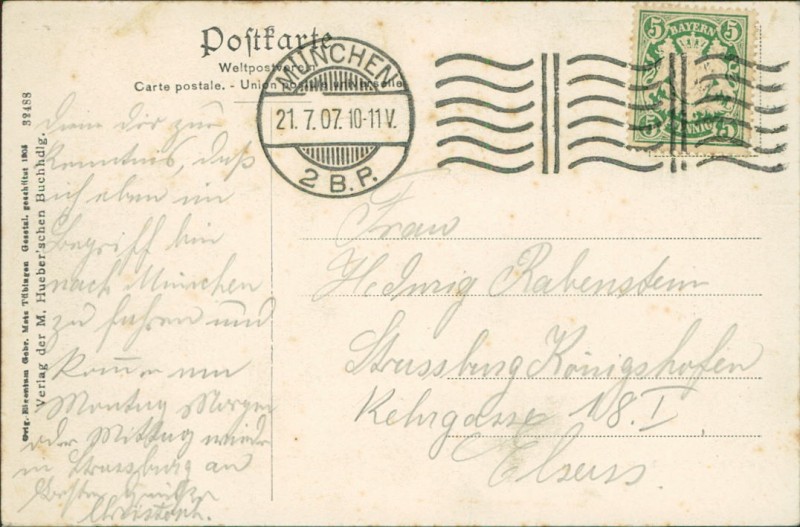 Postkarte
Weltpostverein
Carte postale. - Union postale universelle
MÜNCHEN
21.7.07.10-11V.
2 B.P.
5 BAYERN 5
5 PFENNIG 5
32488
Orig.-Eigentum Gebr. Metz Tübingen Gesetzl. geschützt 1905
Verlag der M. Hueber'schen Buchhdlg.
Diene Dir zur
Kenntnis, daß
ich eben im
Begriff bin
nach München
zu fahren und
komme am
Montag Morgen
oder Mittag wieder
in Strassburg an
Christoph.
Frau
Hedwig Rabenstein
Strassburg Königshofen
Kehrgasse 18.I
Elsass.